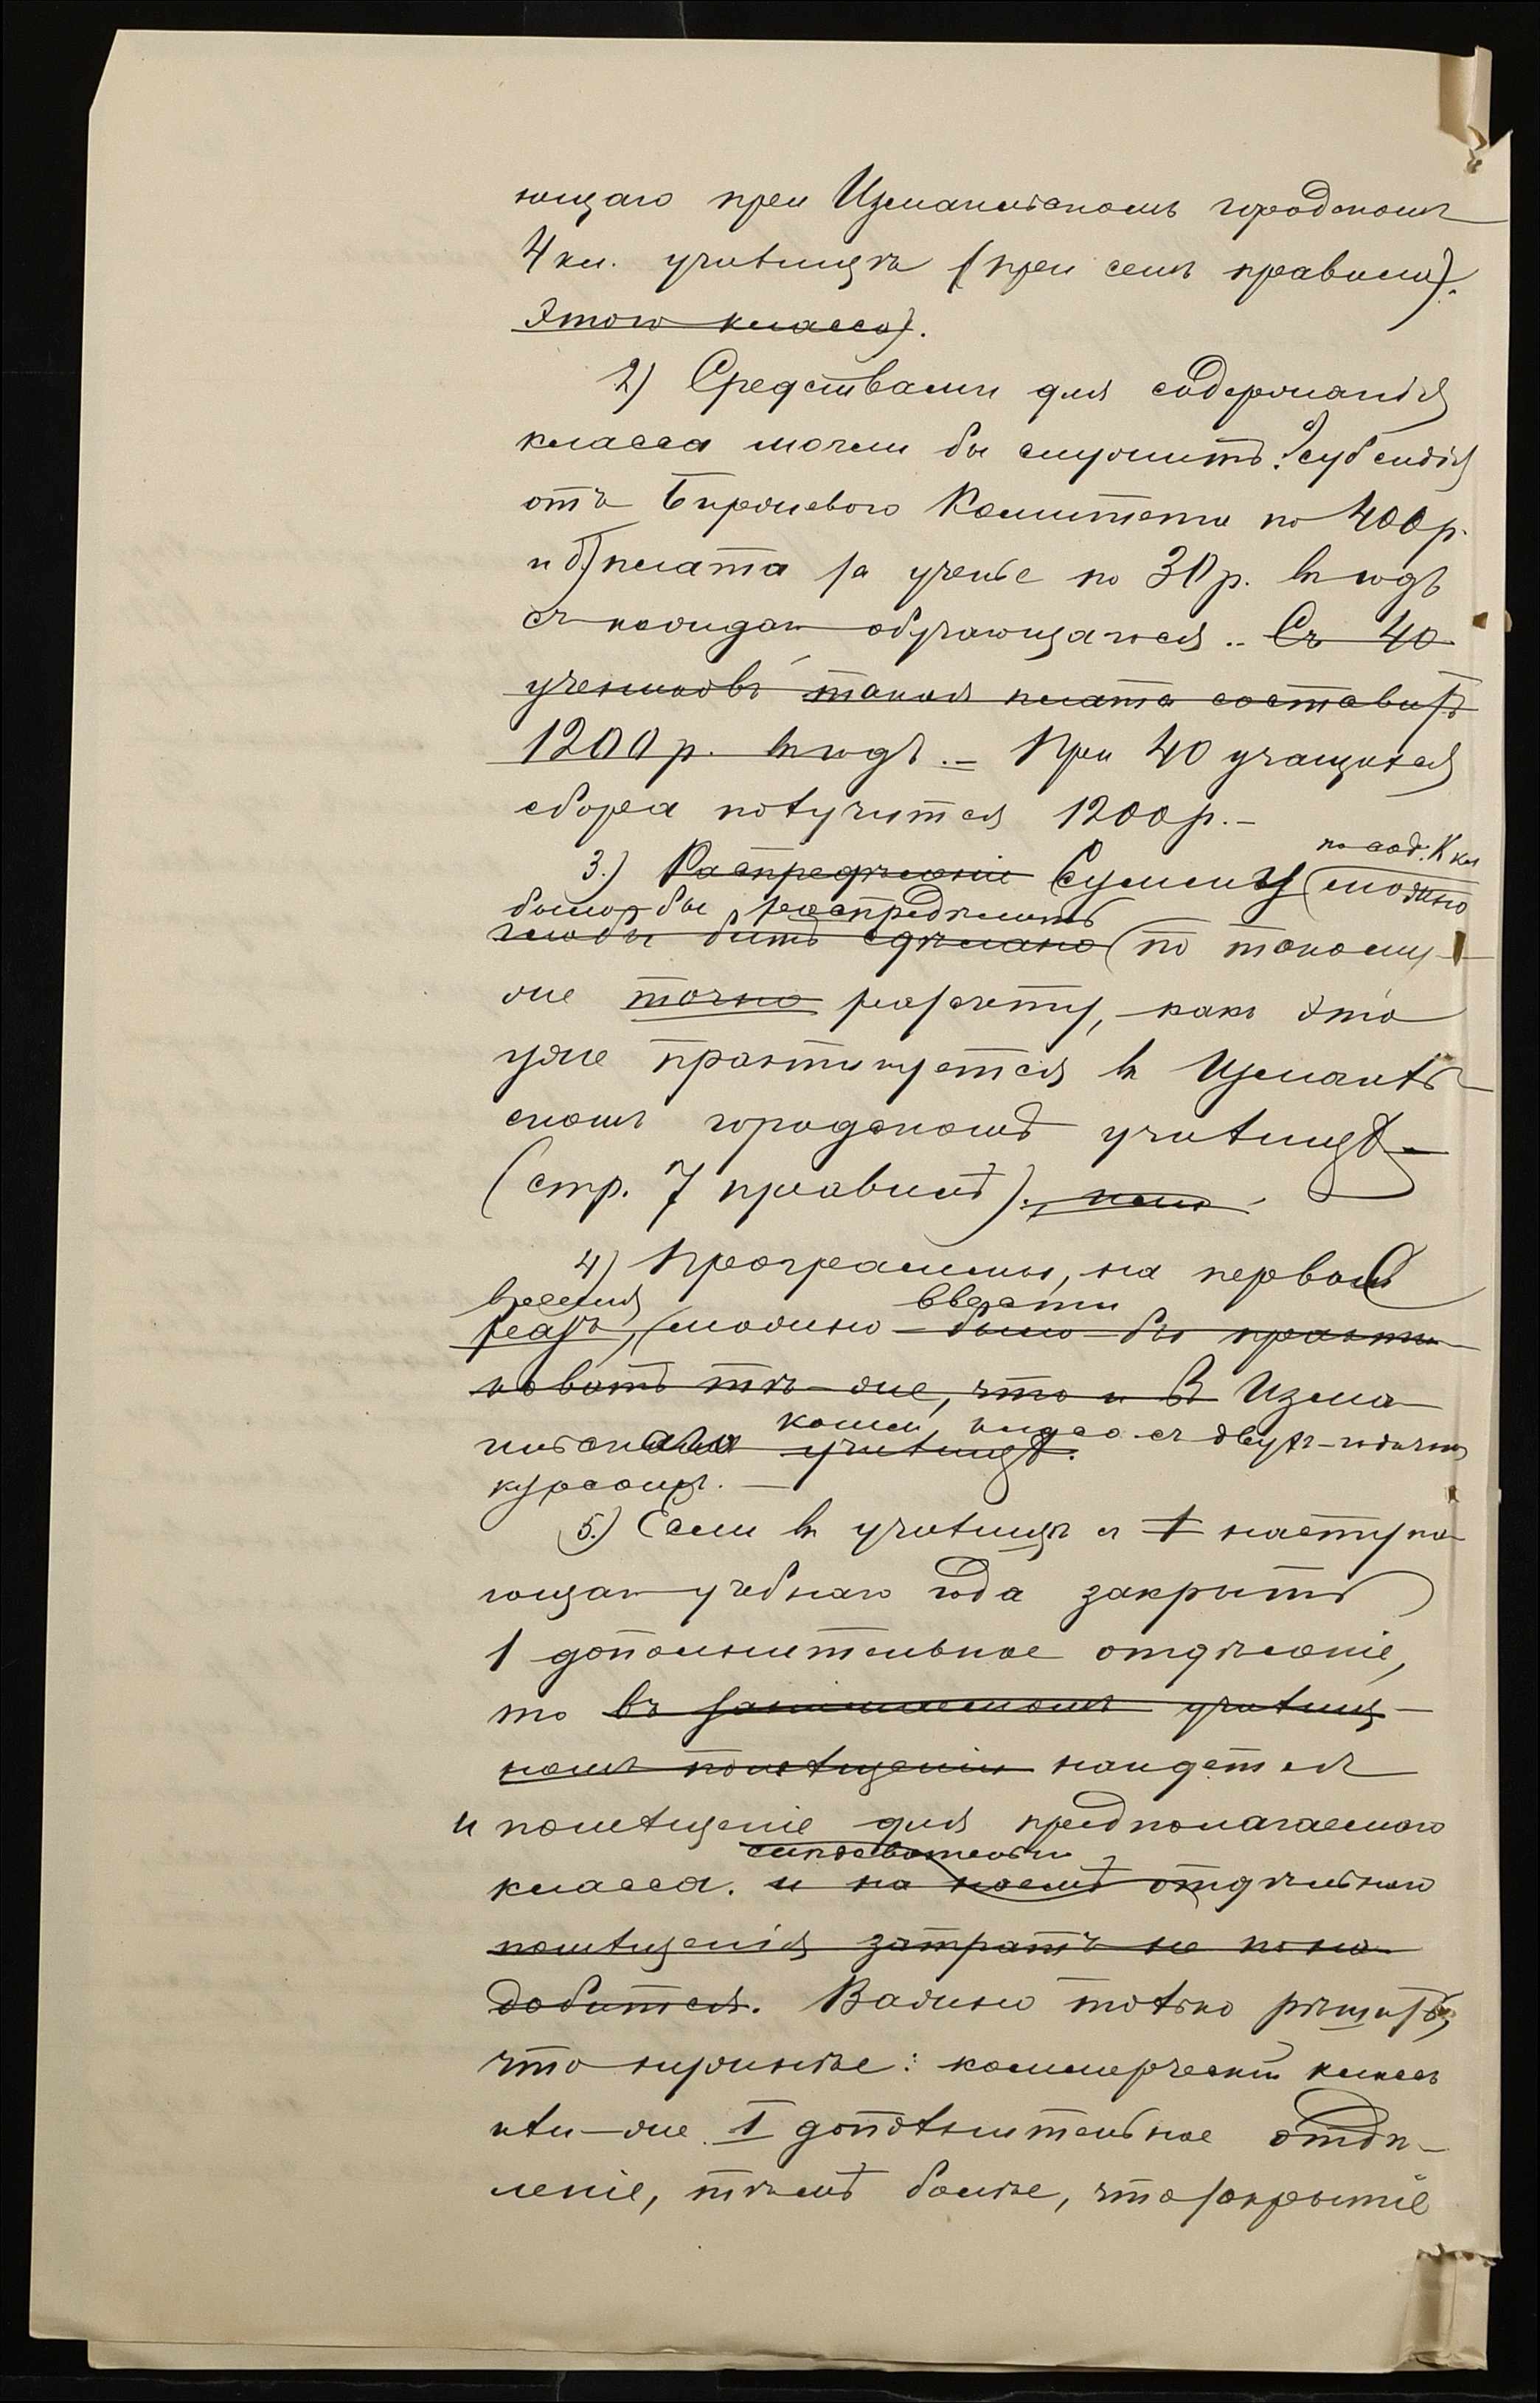 ющаго при Измаильскомъ городскомъ
4 кл. училищѣ (при семъ правила).
этого класса).
2) Средствами для содержанія
класса могли бы служить: а) субсидія
отъ Биржеваго Комитета по 400 р.
и б) плата за ученье по 30 р. въ годъ
съ каждаго обучающагося.. Съ 40
учениковъ такая плата составитъ
1200 р. въ годъ. – При 40 учащихся
сбора получится 1200 р. –
по сод. К кл
3.) Распредѣленіе Суммы можно
было-бы распредѣлить
могло бы быть сдѣлано по такому-
же точно расчету, какъ это
уже практикуется въ Измаиль-
скомъ городскомъ училищѣ –
(стр. 7 правилъ).
4) Программы, на первое
время ввести
разъ, можно было бы практи-
ковать тѣ-же, что и въ Изма-
ком. класса съ двухъ-годичн
ильскаго училищѣ.
курсомъ. –
5.) Если въ училищѣ съ 1 наступа-
ющаго учебнаго года закрыть
1 дополнительное отдѣленіе,
то въ занимаемомъ училищ-
номъ помѣщеніи найдется
и помѣщеніе для предполагаемаго
слѣдовательно
класса. и на наемъ отдѣльнаго
помѣщенія затратъ не пона-
добится. Важно только рѣшить,
что нужнѣе: коммерческій классъ
или-же I дополнительное отдѣ-
леніе, тѣмъ болѣе, что закрытіе